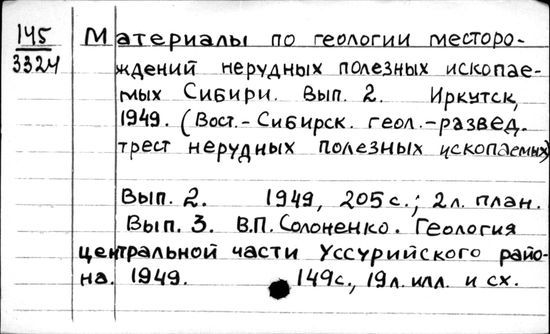 145
3324
Материалы по геологии месторо-
ждений нерудных полезных ископае-
мых Сибири. Вып. 2. Иркутск,
1949. (Вост.-Сибирск. геол.-развед.
трест нерудных полезных ископаемых)
Вып. 2. 1949, 205 с.; 2 л. план.
Вып. 3. В.П. Солоненко. Геология
центральной части Уссурийского райо-
на. 1949. 149 с., 19 л. илл. и сх.